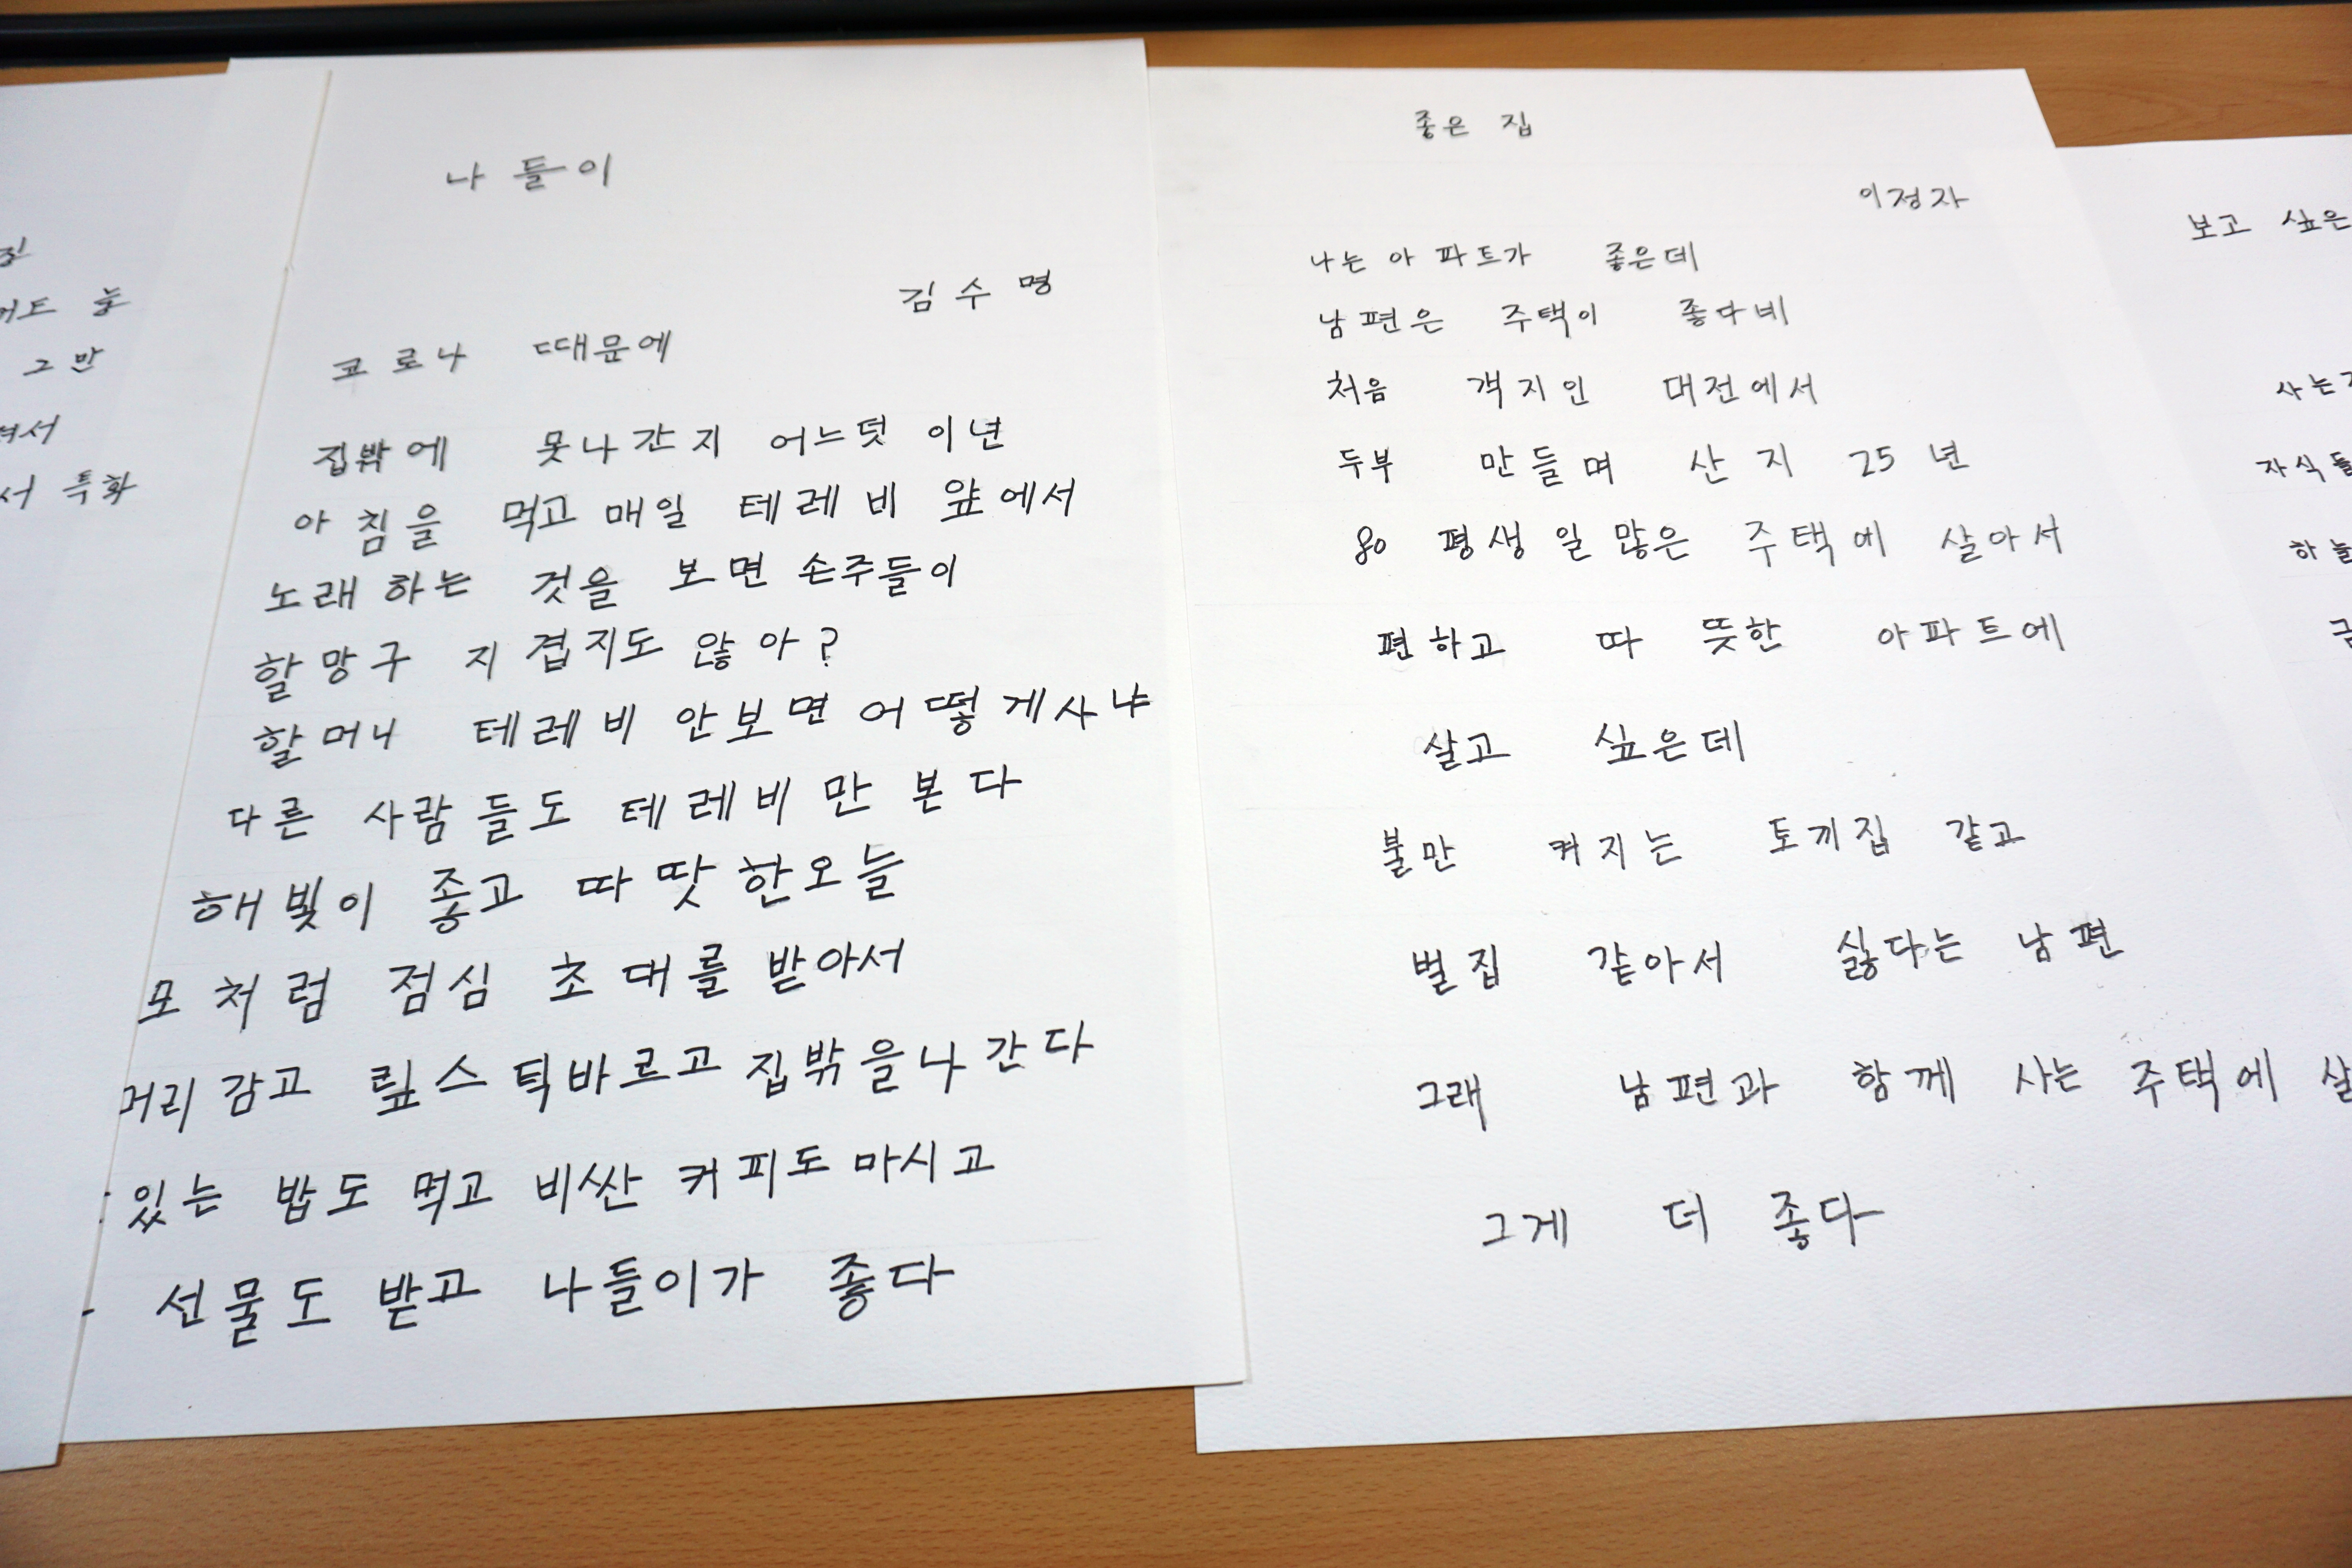 그만
서 특화
나들이
김수명
코로나 때문에
집밖에 못나간지 어느덧 이년
아침을 먹고 매일 테레비 앞에서
노래하는 것을 보면 손주들이
할망구 지겹지도 않아?
할머니 테레비 안보면 어떻게사냐
다른 사람들도 테레비만 본다
해빛이 좋고 따땃한오늘
모처럼 점심 초대를 받아서
머리감고 맆스틱바르고 집밖을나간다
있는 밥도 먹고 비싼 커피도 마시고
선물도 받고 나들이가 좋다
좋은 집
이정자
나는 아파트가 좋은데
남편은 주택이 좋다네
처음 객지인 대전에서
두부 만들며 산지 25년
80 평생 일많은 주택에 살아서
편하고 따뜻한 아파트에
살고 싶은데
불만 켜지는 토끼집 같고
벌집 같아서 싫다는 남편
그래 남편과 함께 사는 주택에 살
그게 더 좋다
보고 싶은
사는
자식들
하늘